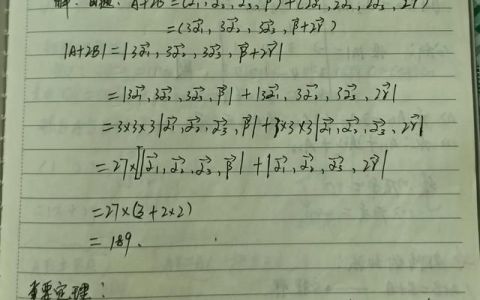 解：由题：A+2B=(α₁⃗, α₂⃗, α₃⃗, β⃗)+(2α₁⃗, 2α₂⃗, 2α₃⃗, 2γ⃗)
=(3α₁⃗, 3α₂⃗, 3α₃⃗, β⃗+2γ⃗)
|A+2B|=|3α₁⃗, 3α₂⃗, 3α₃⃗, β⃗+2γ⃗|
=|3α₁⃗, 3α₂⃗, 3α₃⃗, β⃗|+|3α₁⃗, 3α₂⃗, 3α₃⃗, 2γ⃗|
=3×3×3|α₁⃗, α₂⃗, α₃⃗, β⃗|+3×3×3|α₁⃗, α₂⃗, α₃⃗, 2γ⃗|
=27×[|α₁⃗, α₂⃗, α₃⃗, β⃗|+|α₁⃗, α₂⃗, α₃⃗, 2γ⃗|
=27×(3+2×2)
=189.
重要定理：